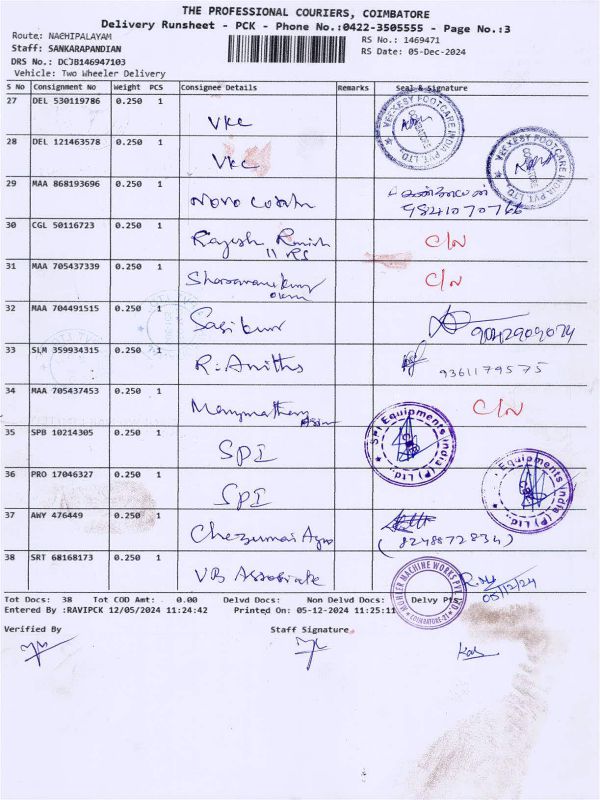 THE PROFESSIONAL COURIERS, COIMBATORE
Delivery Runsheet - PCK - Phone No.:0422-3505555 - Page No.:3
Route: NACHIPALAYAM
RS No.: 1469471
Staff: SANKARAPANDIAN
RS Date: 05-Dec-2024
DRS No.: DCJB146947103
Vehicle: Two Wheeler Delivery
S No Consignment No Weight PCS Consignee Details Remarks Seal & Signature
27 DEL 530119786 0.250 1 VKC
VEEKESY FOOTCARE INDIA PVT. LTD.
28 DEL 121463578 0.250 1 VKC
VEEKESY FOOTCARE INDIA PVT. LTD.
29 MAA 868193696 0.250 1 Novo
9841070766
30 CGL 50116723 0.250 1 Rajesh C/N
31 MAA 705437339 0.250 1 C/N
32 MAA 704491515 0.250 1 Sasikumar 9042909074
33 SLM 359934315 0.250 1 R. Anitha 9361179575
34 MAA 705437453 0.250 1 C/N
35 SPB 10214305 0.250 1 SPI
SPI Equipments India (P) Ltd.
36 PRO 17046327 0.250 1 SPI
Equipments India (P) Ltd.
37 AWY 476449 0.250 1 Agro
(8248872834)
38 SRT 68168173 0.250 1 VB Associate
MACHINE WORKS PVT. LTD. COIMBATORE-21
05/12/24
Tot Docs: 38 Tot COD Amt: 0.00 Delvd Docs: Non Delvd Docs: Delvy Pts
Entered By :RAVIPCK 12/05/2024 11:24:42 Printed On: 05-12-2024 11:25:11
Verified By Staff Signature